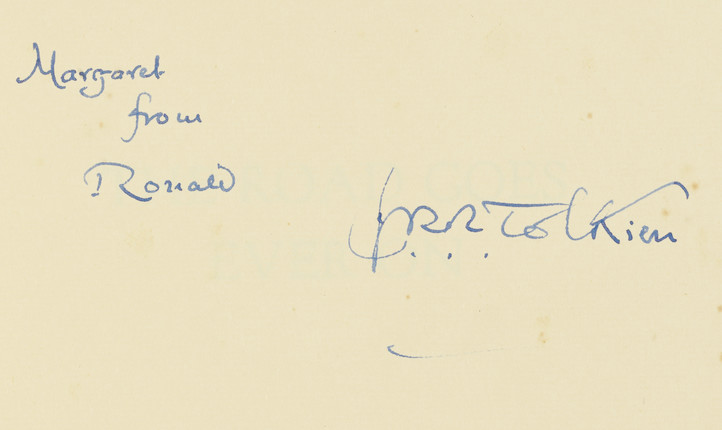 Margaret
from
Ronald
JRRTolkien